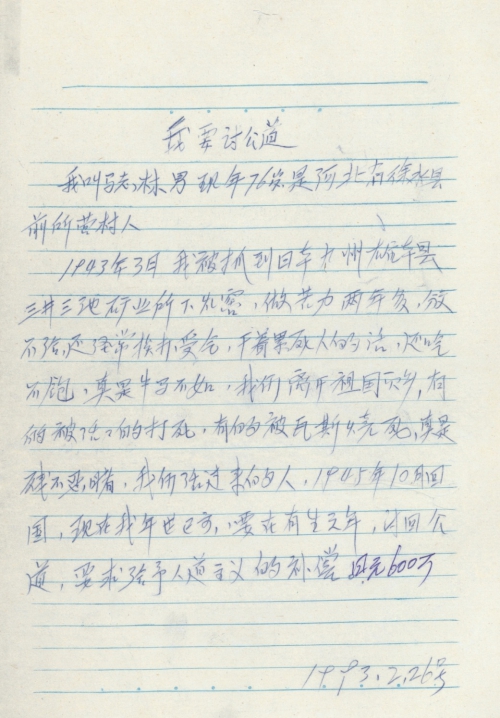 我要讨公道
我叫马志林 男 现年76岁是河北省徐水县
前所营村人
1943年3月 我被抓到日本九州 县
三井三池矿业所下 窑，做苦力两年多，分文
不给还经常挨打受气，干着累死人的活，还吃
不饱，真是牛马不如，我们离开祖国 乡，有
的被活活的打死，有的被瓦斯烧死，真是
残不忍睹，我们活过来的人，1945年10月回
国，现在我年世已高，要在有生之年，讨回公
道，要求给予人道主义的补偿 日元600万
1993.2.26号